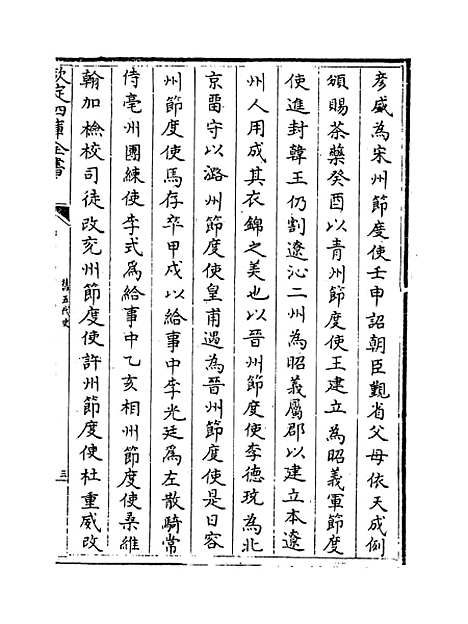 彦威為宋州節度使壬申詔朝臣覲省父母依天成例
頒賜茶藥癸酉以青州節度使王建立為昭義軍節度
使進封韓王仍割遼沁二州為昭義屬郡以建立本遼
州人用成其衣錦之美也以晉州節度使李德珫為北
京留守以潞州節度使皇甫遇為晉州節度使是日容
州節度使馬存卒甲戌以給事中李光廷爲左散騎常
侍亳州團練使李式爲給事中乙亥相州節度使桑維
翰加檢校司徒改兖州節度使許州節度使杜重威改
欽定四庫全書
舊五代史
三